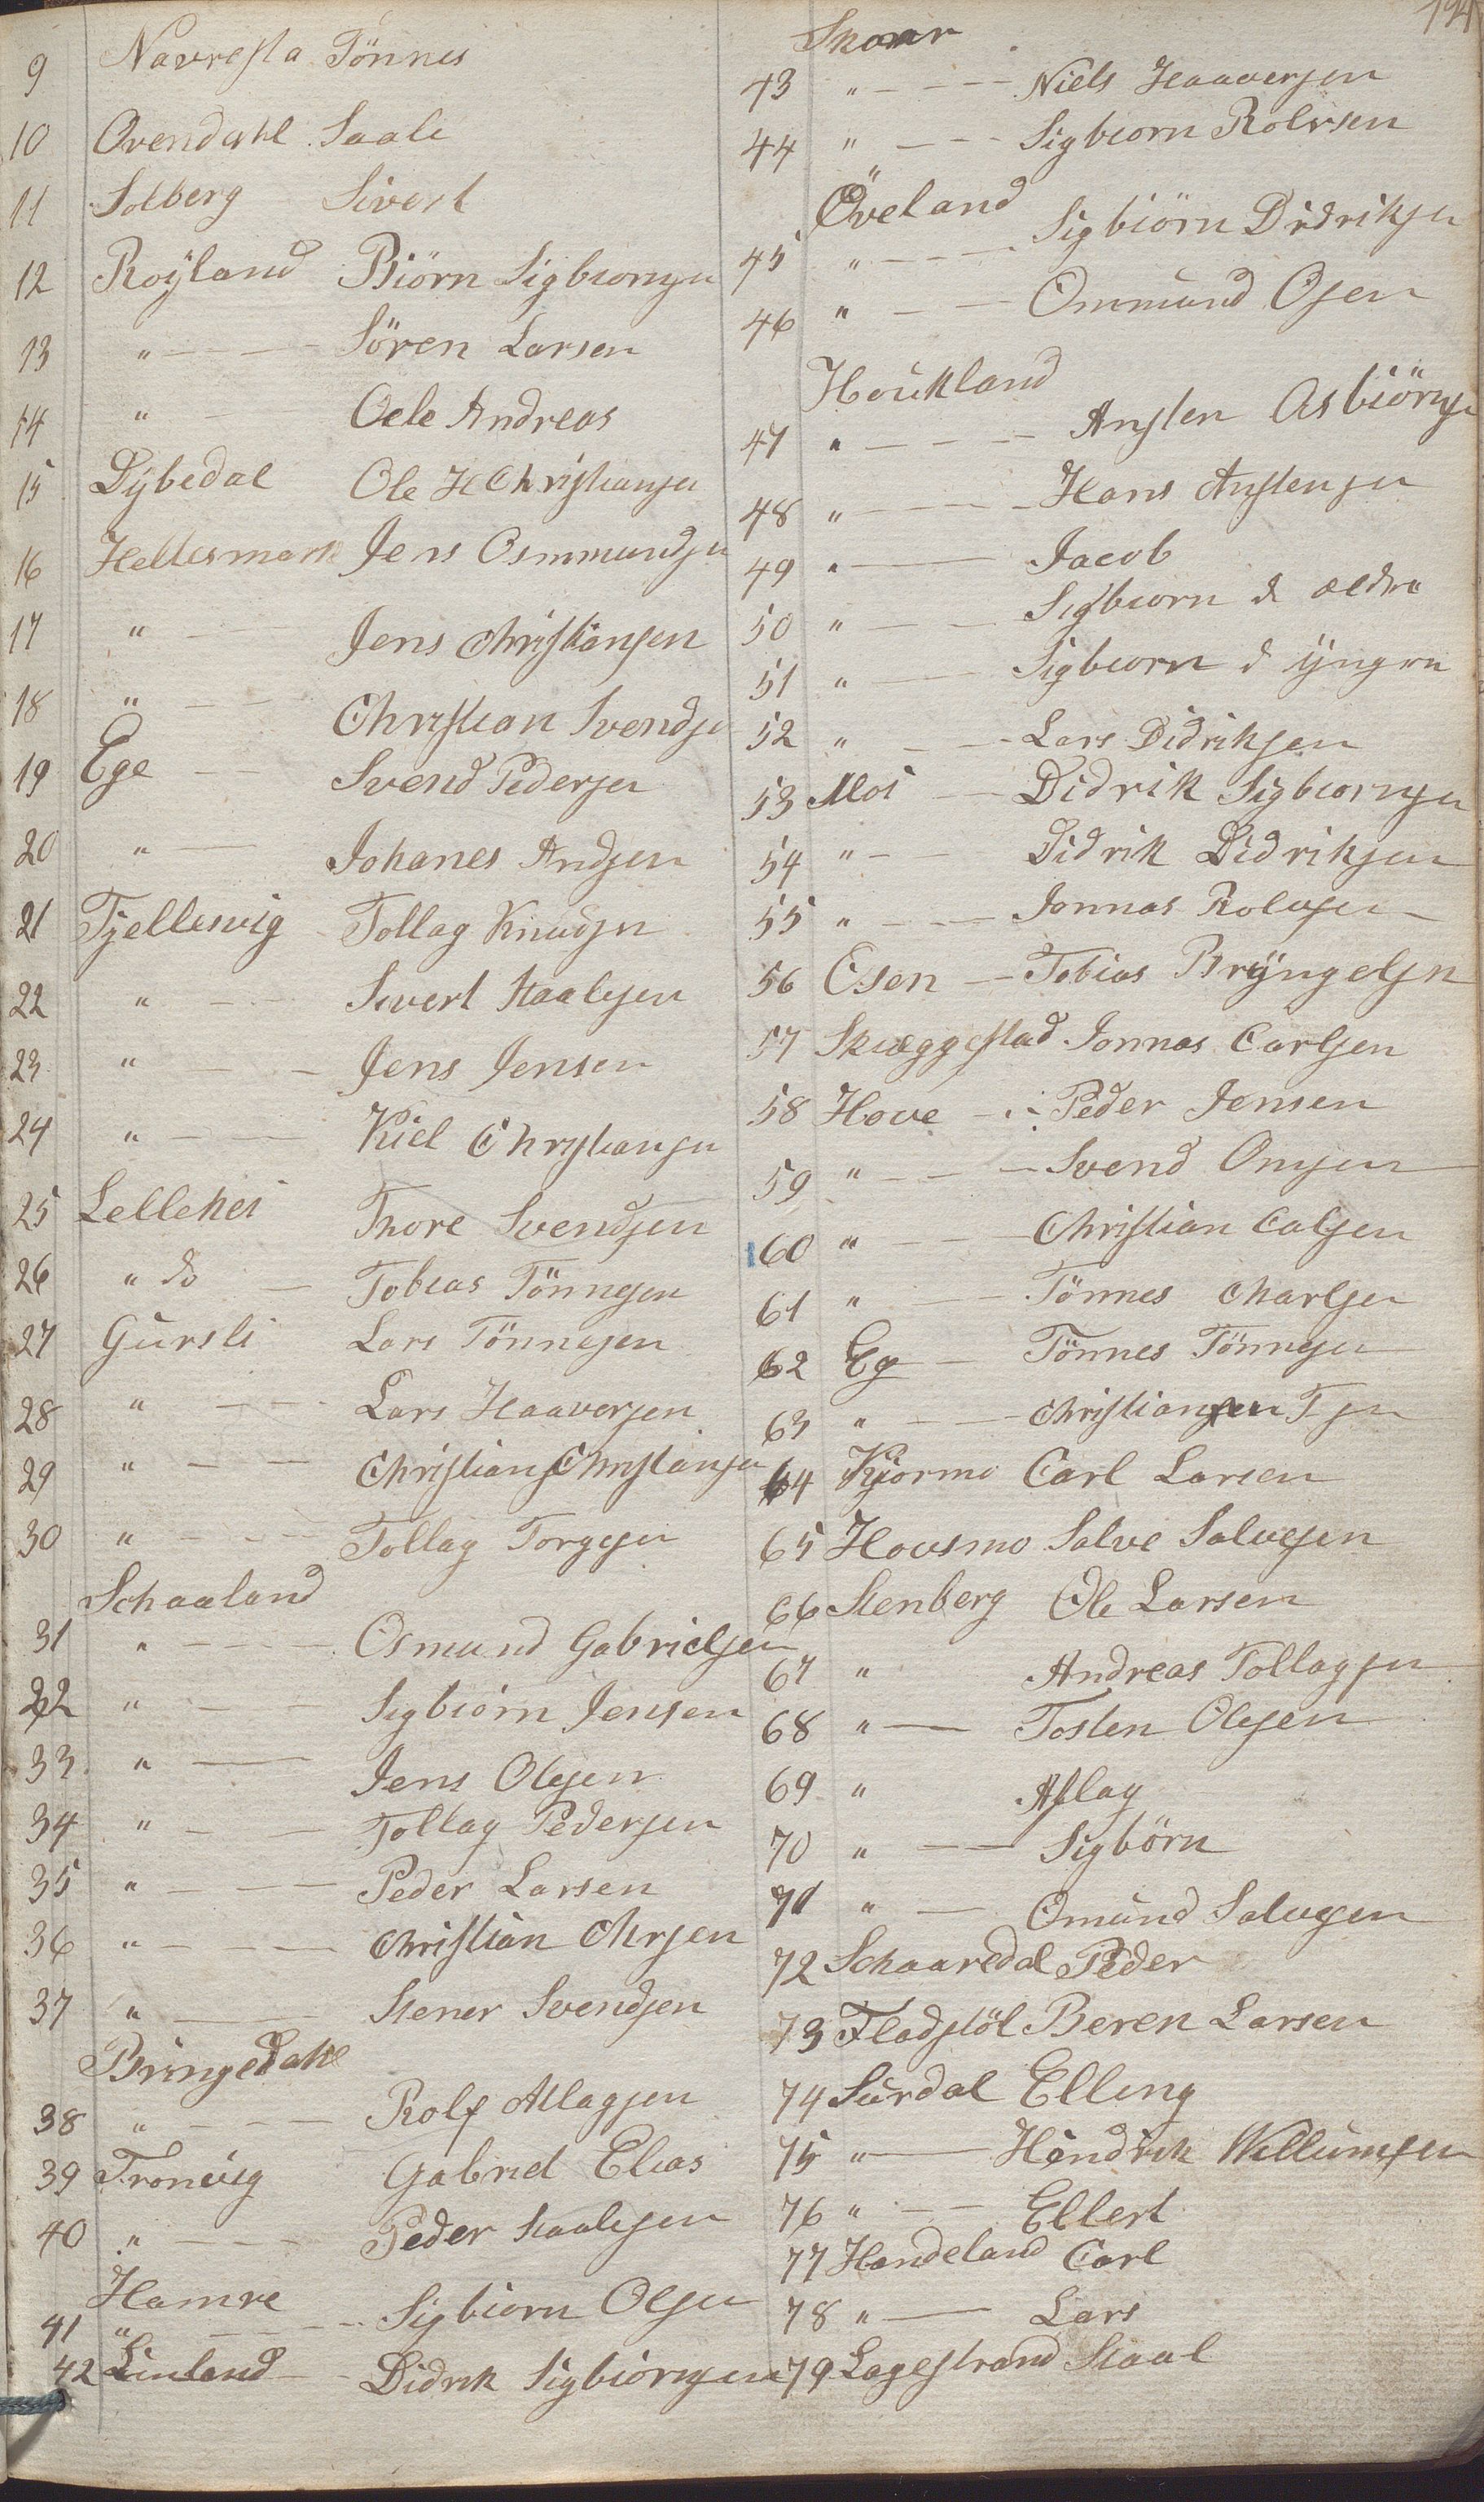 9 Navresta Tönnes
10 Ovendahl Saali
11 Solberg Sivert
12 Röyland Biörn Sigbiornsen
13 " - - - Sören Larsen
14 " - - Oele Andreas
15 Dybedal Ole H Christiansen
16 Hellesmark Jens Osmmundsen
17 " - - Jens Christiansen
18 " - - Christian Svendsen
19 Ege - - Svend Pedersen
20 " - Johanes Andsen
21 Tjellesvig Tollag Knudsen
22 " - - Sivert Staalesen
23 " - Jens Jensen
24 " - - Kiel Christiansen
25 Lellehei Thore Svendsen
26 " do - Tobias Tönnesen
27 Gursli Lars Tönnesen
28 " - - - Lars Haaversen
29 " - - Christian Christiansen
30 " - - - Tollag Torgesen
Schaaland
31 " - - - Osmund Gabrielsen
32 " - - Sigbiörn Jensen
33 " - - Jens Olesen
34 " - - Tollag Pedersen
35 " - - - Peder Larsen
36 " - - - Christian Chrsen
37 " - - Stener Svendsen
Bringedahl
38 " - - - Rolf Atlagsen
39 Tronvig Gabriel Elias
40 " - - - Peder Staalesen
Hamre
41 " - - - Sigbiorn Olsen
42 Linland - Didrik Sigbiörnsen
124
Skoar
43 " - - - Niels Haaversen
44 " - - - Sigbiorn Rolvsen
Öveland
45 " - - - Sigbiörn Didriksen
46 " - - Ommund Osen
Houkland
47 " - - - Ansten Asbiörnsen
48 " - - - Hans Anstensen
49 " - Jacob
50 " - - Sigbiorn d ældre
51 " - Sigbiorn d yngre
52 " - - Lars Didriksen
53 Moi - Didrik Sigbiornsen
54 " - - Didrik Didriksen
55 " - - - Jonnas Rolvsen
56 Esen - Tobias Bryngelsen
57 Skiæggestad Jonnas Carlsen
58 Hove - Peder Jensen
59 " - - - Svend Omsen
60 " - - - Christian Calsen
61 " - - Tönnes Charlsen
62 Eg - Tönnes Tönnesen
63 " - - - Christian T sen
64 Kjormo Carl Larsen
65 Hovsmo Salve Salvesen
66 Stenberg Ole Larsen
67 " Andreas Tollagsen
68 " - Tosten Olesen
69 " Aslag
70 " - - Sigbörn
71 " - Omund Salvesen
72 Schaaredal Peder
73 Fladstöl Beren Larsen
74 Surdal Elling
75 " - Hendrik Willumsen
76 " - - Ellert
77 Handeland Carl
78 " - Lars
79 Lagestrand Staal